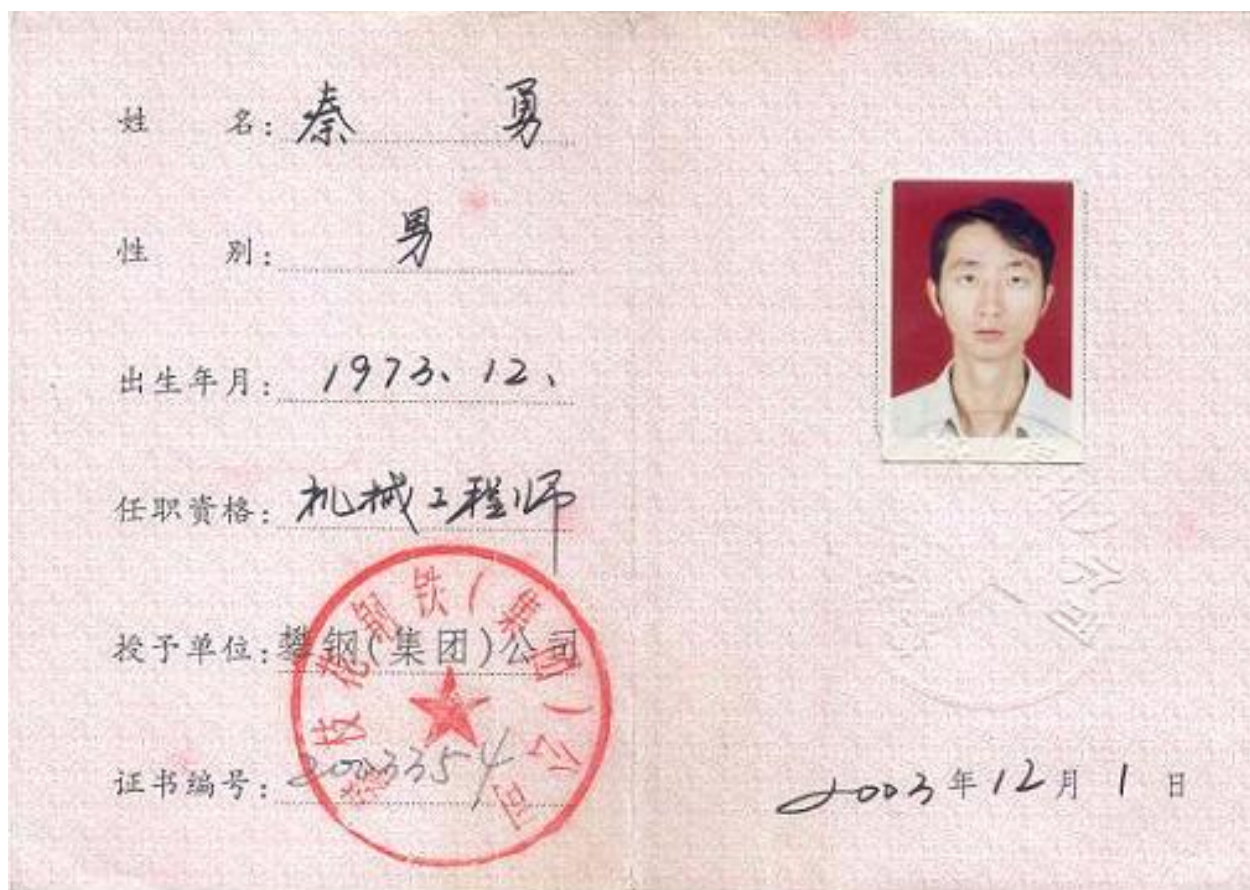 姓 名: 秦 勇
性 别: 男
出生年月: 1973、12、
任职资格: 机械工程师
授予单位: 攀钢(集团)公司
证书编号: 2003354
攀枝花钢铁(集团)公司
2003年12月1日